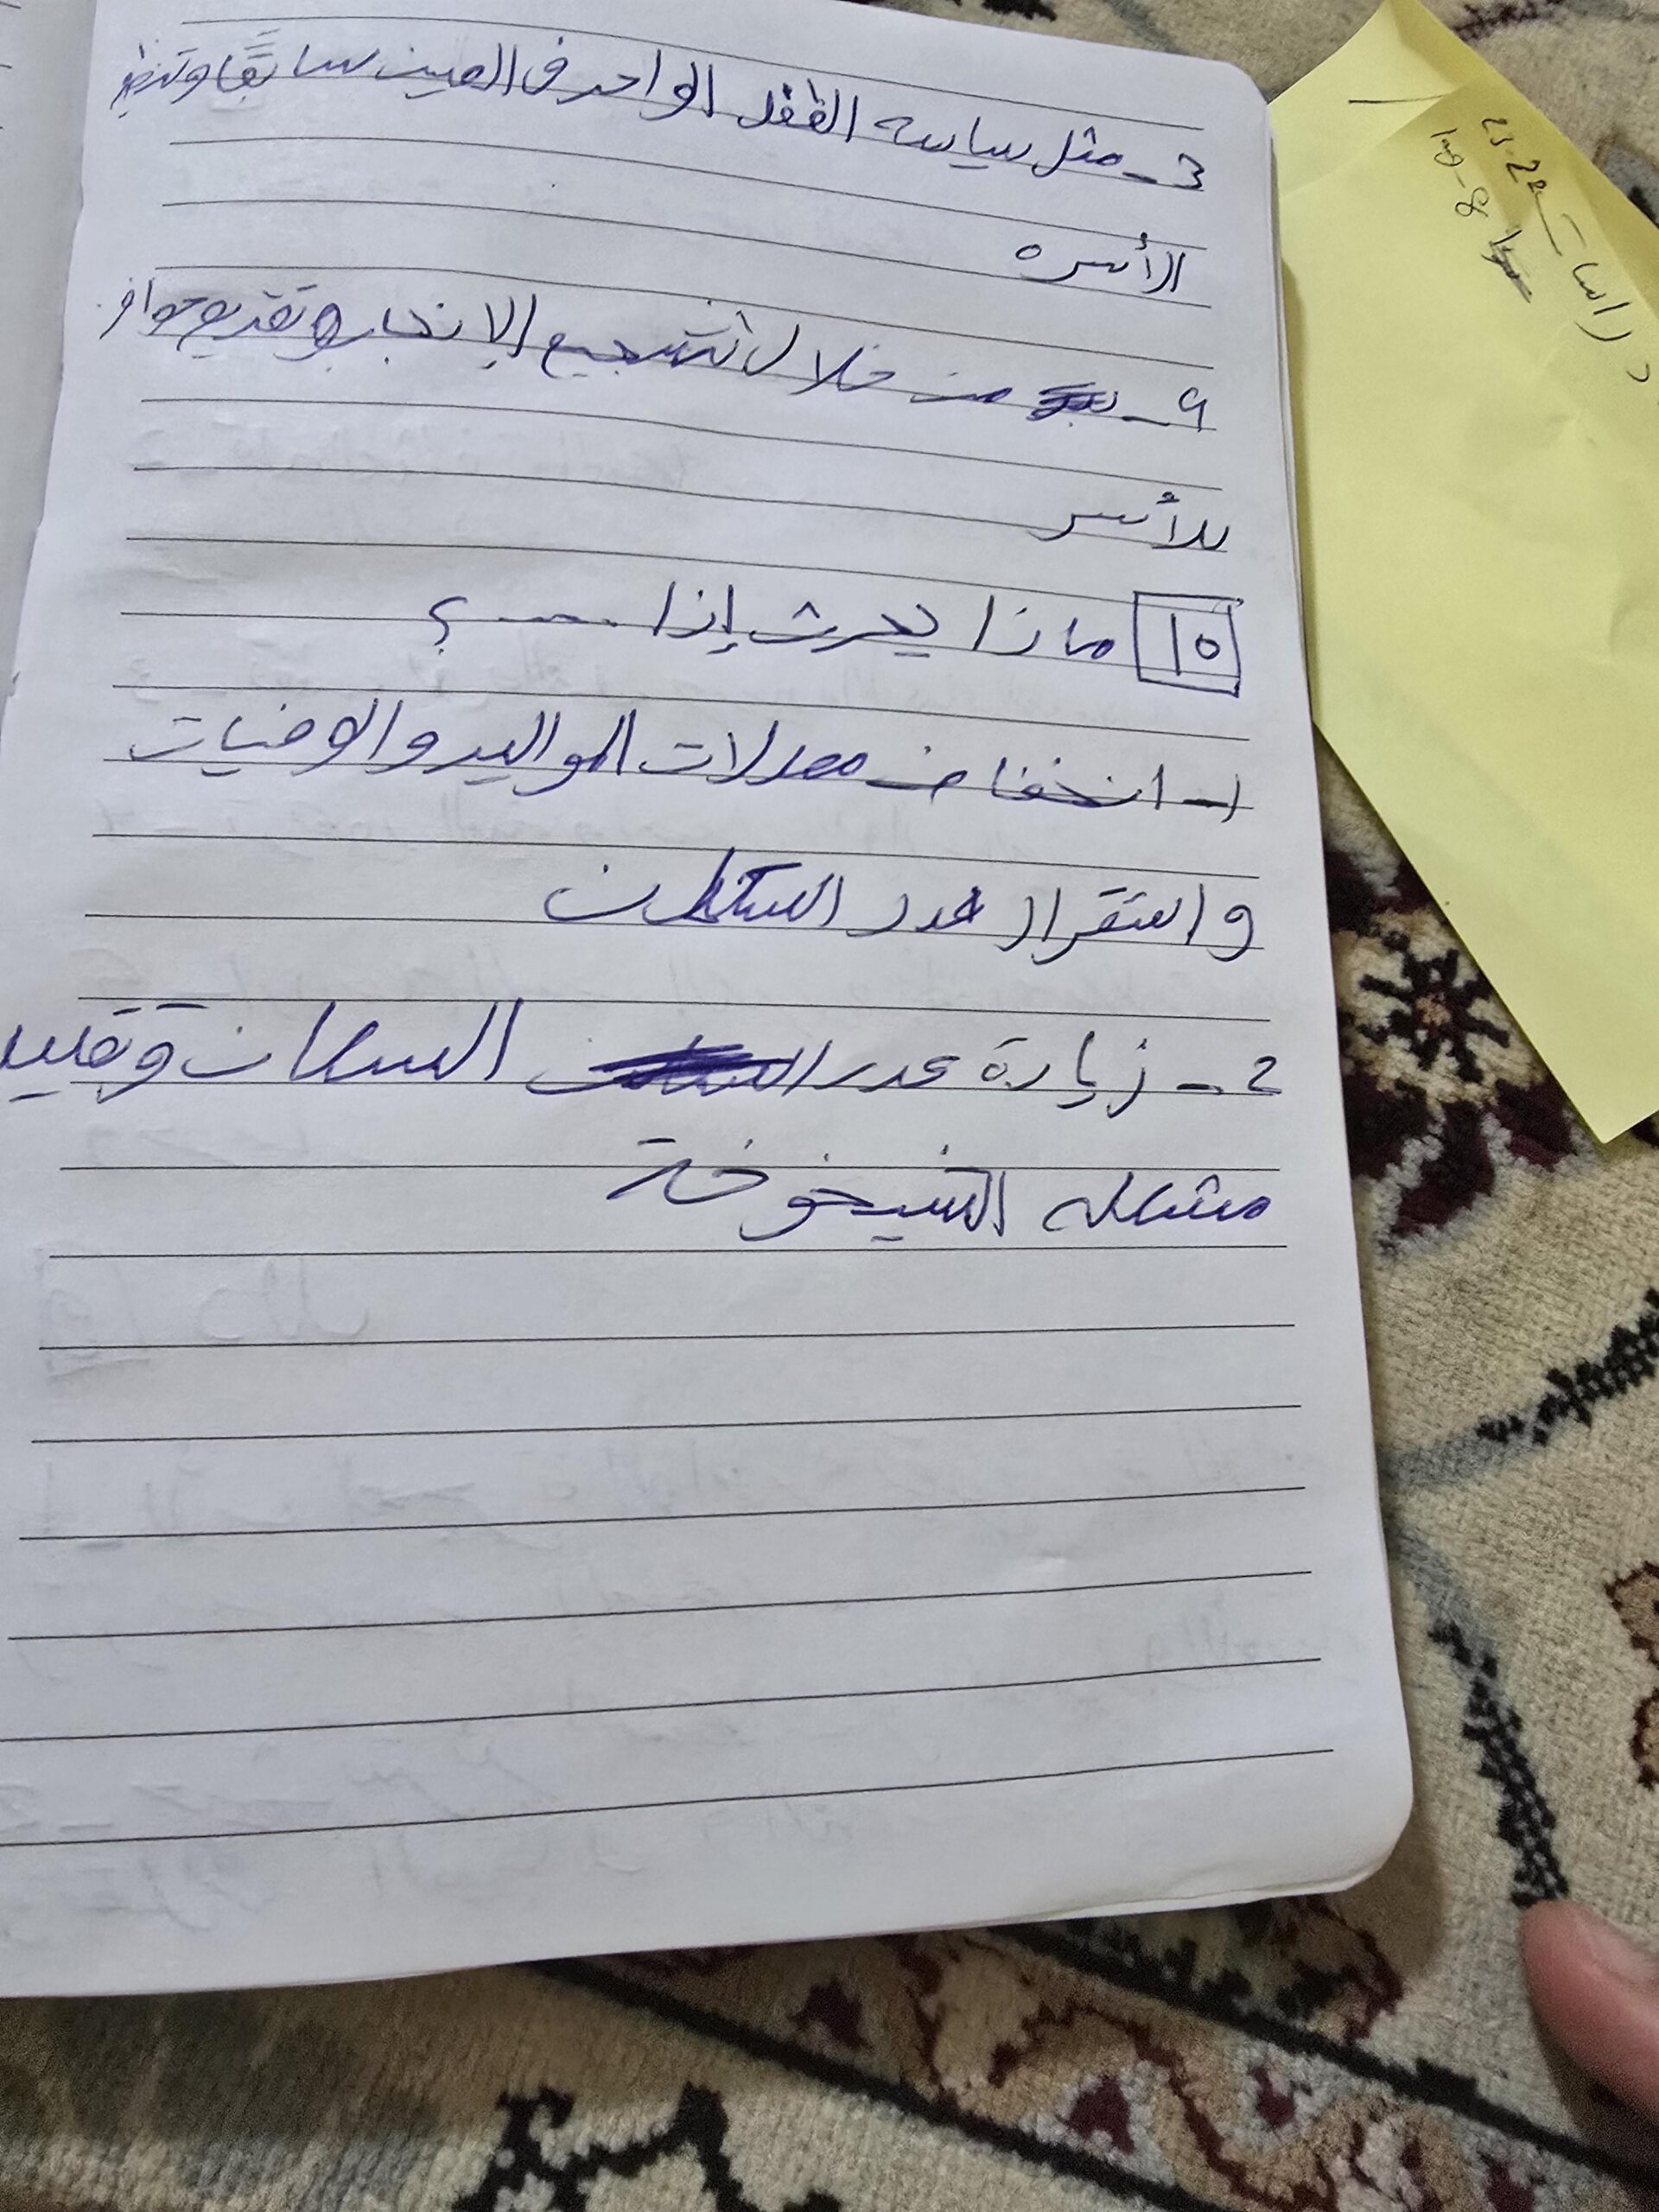 3- مثل سياسه الطفل الواحد فى الصين سابقًا وتنظيم
الأسره
9- من خلال تشجيع الإنجاب وتقديم حوافز
للأسر
10 ماذا يحدث إذا ..... ؟
1- انخفاض معدلات المواليد والوفيات
واستقرار عدد السكان
2- زيادة عدد السكان وتقليل
مشكله الشيخوخة
دراسات